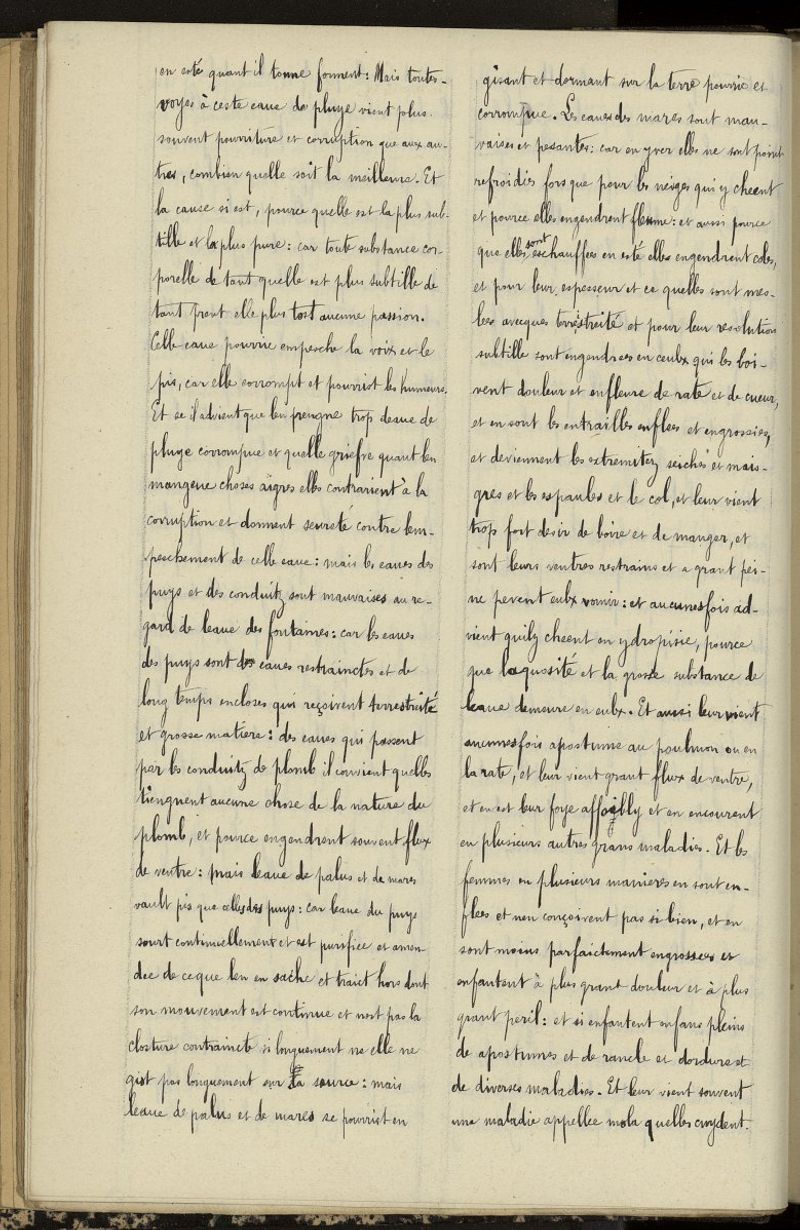 en esté quant il tonne forment: Mais toutes-
voyes à ceste eaue de pluye vient plus
souvent pourriture et corruption que aux au-
tres, combien quelle soit la meilleure. Et
la cause si est, pource quelle est la plus sub-
tille et la plus pure: car toute substance cor-
porelle de tant quelle est plus subtille de
tant prent elle plus tost aucune passion.
Celle eaue pourrie empesche la voix et le
pis, car elle corrompt et pourrist les humeurs.
Et se il advient que len prengne trop deaue de
pluye corrompue et quelle griefve quant len
mangeue choses aigres elles contrarient à la
corruption et donnent seureté contre lem-
peschement de celle eaue: mais les eaues des
puys et des conduitz sont mauvaises au re-
gard de leaue des fontaines: car les eaues
des puys sont des eaues restrainctes et de
long temps encloses qui reçoivent terrestreité
et grosse matiere: des eaues qui passent
par les conduitz de plomb il convient quelles
tiengnent aucune chose de la nature du
plomb, et pource engendrent souvent flux
de ventre: mais leaue de palus et de mares
vault pis que celles des puys: car leaue du puys
sourt continuellement et est purifiee et amen-
dee de ce que len en sache et traict hors dont
son mouvement est continue et nest pas la
closture contraincte si longuement ne elle ne
gist pas longuement sur la source: mais
leaue de palus et de mares se pourrist en
gisant et dormant sur la terre pourrie et
corrompue. Les eaues des mares sont mau-
vaises et pesantes: car en yver elles ne sont point
refroidies fors que pour les neiges qui y cheent
et pource elles engendrent fleume: et aussi pource
que elles sont eschauffees en esté elles engendrent coles,
et pour leur espesseur et ce quelles sont mes-
lees avecques terrestreité et pour leur resolution
subtille sont engendrees en ceulx qui les boi-
vent douleur et enfleure de rate et de cueur,
et en sont les entrailles enflees et engrossies,
et deviennent les extremitez seiches et mais-
gres et les espaules et le col, et leur vient
trop fort desir de boire et de manger, et
sont leurs ventres restrains et a grant pei-
ne pevent eulx vomir: et aucunesfois ad-
vient quilz cheent en ydropisie, pource
que laquosité et la grosse substance de
leaue demeure en eulx. Et aussi leur vient
aucunesfois apostume au poulmon ou en
la rate, et leur vient grant flux de ventre,
et en est leur foye affoilly et en encourent
en plusieurs autres grans maladies. Et les
femmes en plusieurs manieres en sont en-
flees et nen conçoivent pas si bien, et en
sont moins parfaictement engrossees et
enfantent à plus grant douleur et à plus
grant peril: et si enfantent enfans pleins
de apostumes et de rancle et dordure et
de diverses maladies. Et leur vient souvent
une maladie appellee mola quelles cuydent.